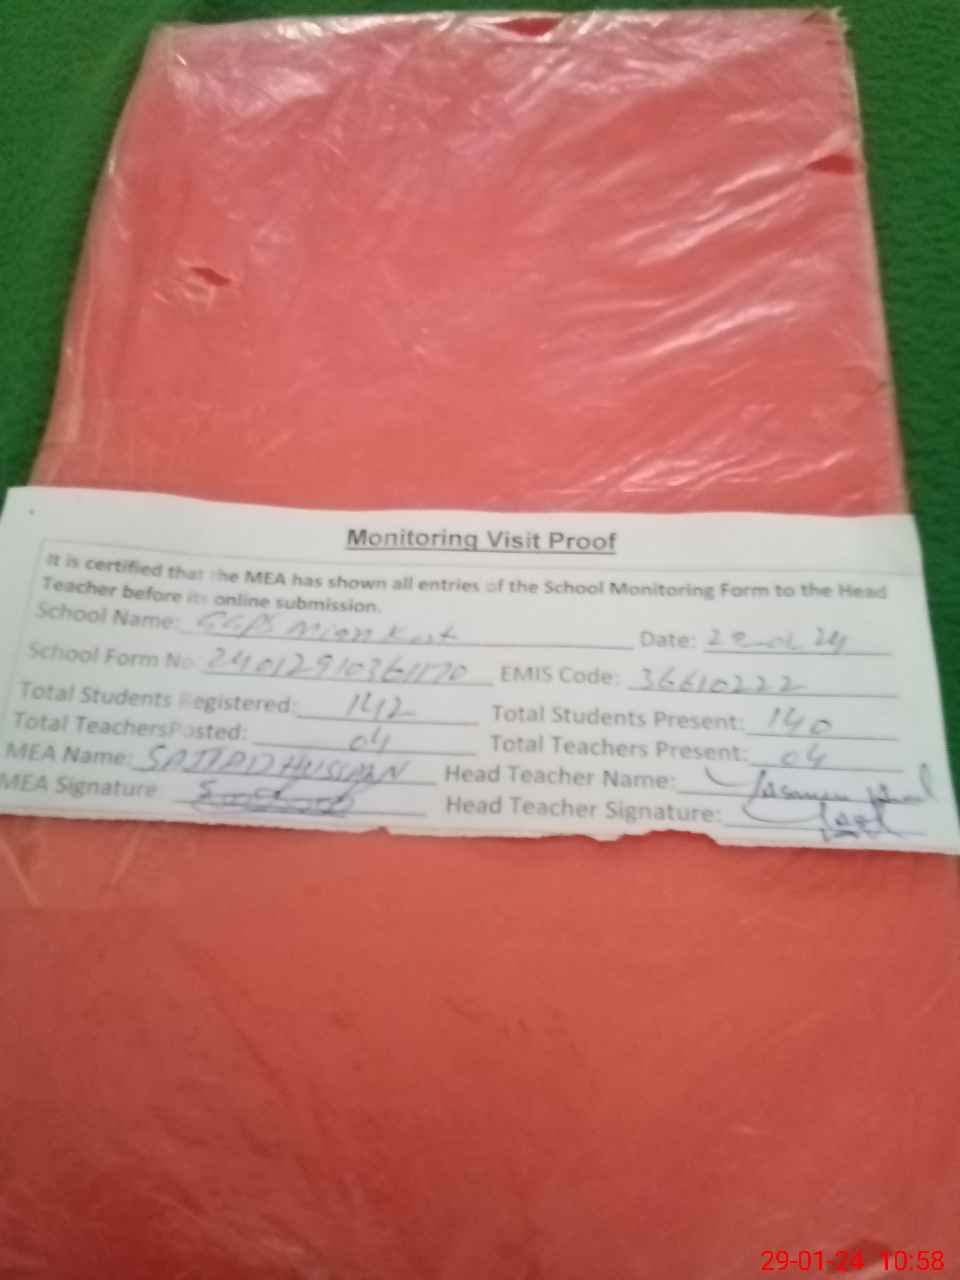 Monitoring Visit Proof
It is certified that the MEA has shown all entries of the School Monitoring Form to the Head
Teacher before its online submission.
School Name: Date: 24
School Form No: 24012910361170 EMIS Code: 36610222
Total Students Registered: 142 Total Students Present: 140
Total TeachersPosted: 04 Total Teachers Present: 04
MEA Name: SAJJAD HUSSAIN Head Teacher Name:
MEA Signature Head Teacher Signature:
29-01-24 10:58